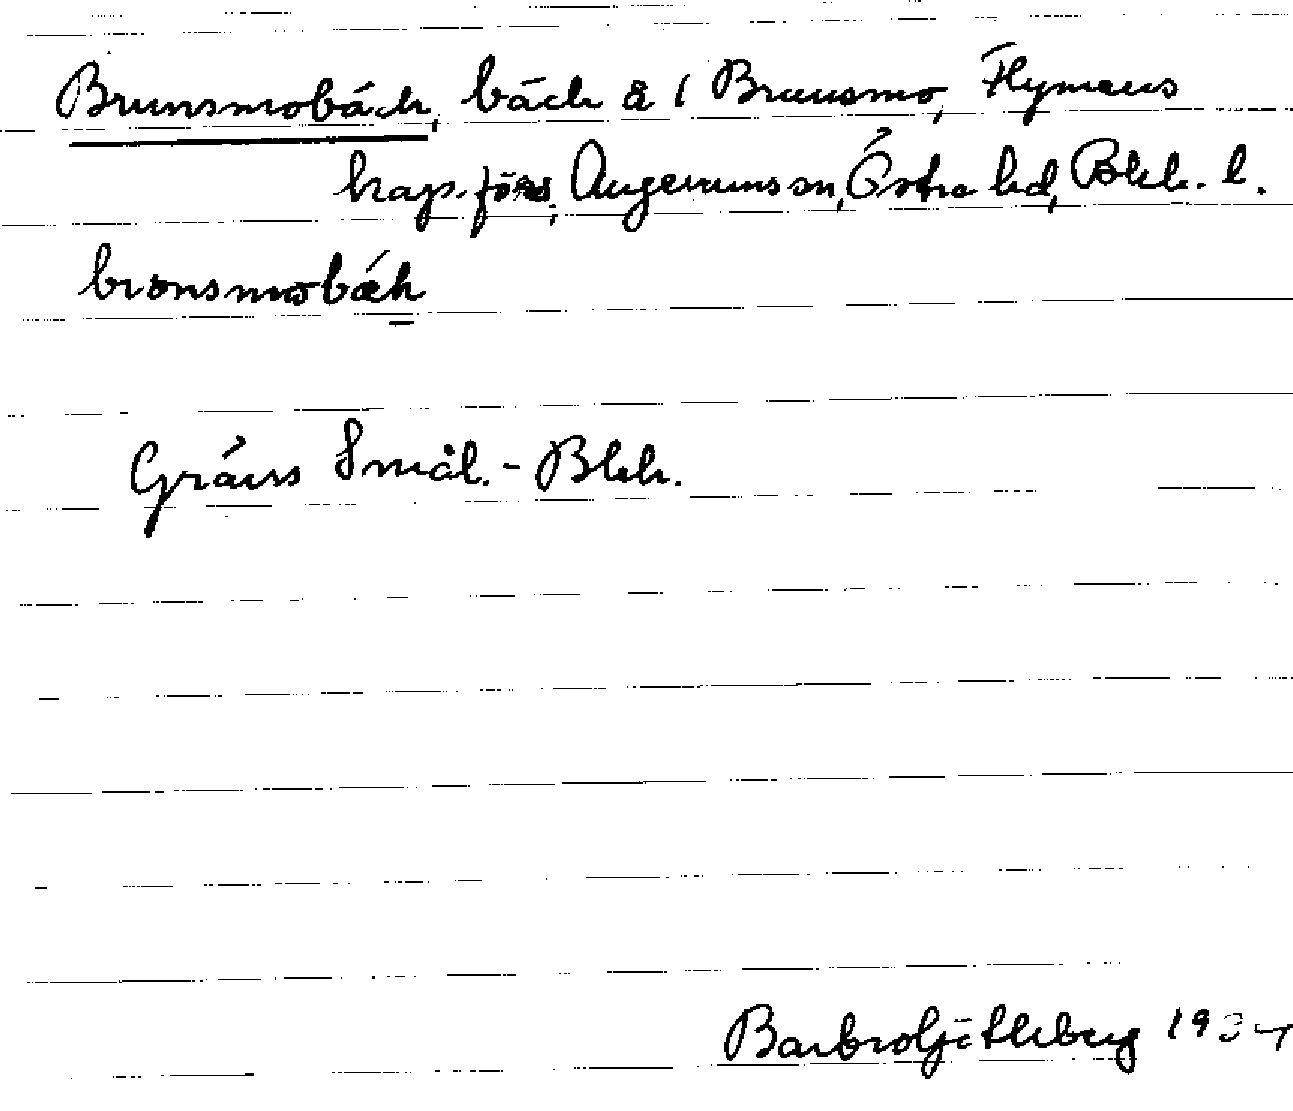 Brunsmobäck, bäck å 1 Brunsmo, Flymens
kap.förs, Augerums sn, Östra hd, Blek. l.
bronsmobæk
Gräns Smål. - Blek.
Barbro Götleberg 1934